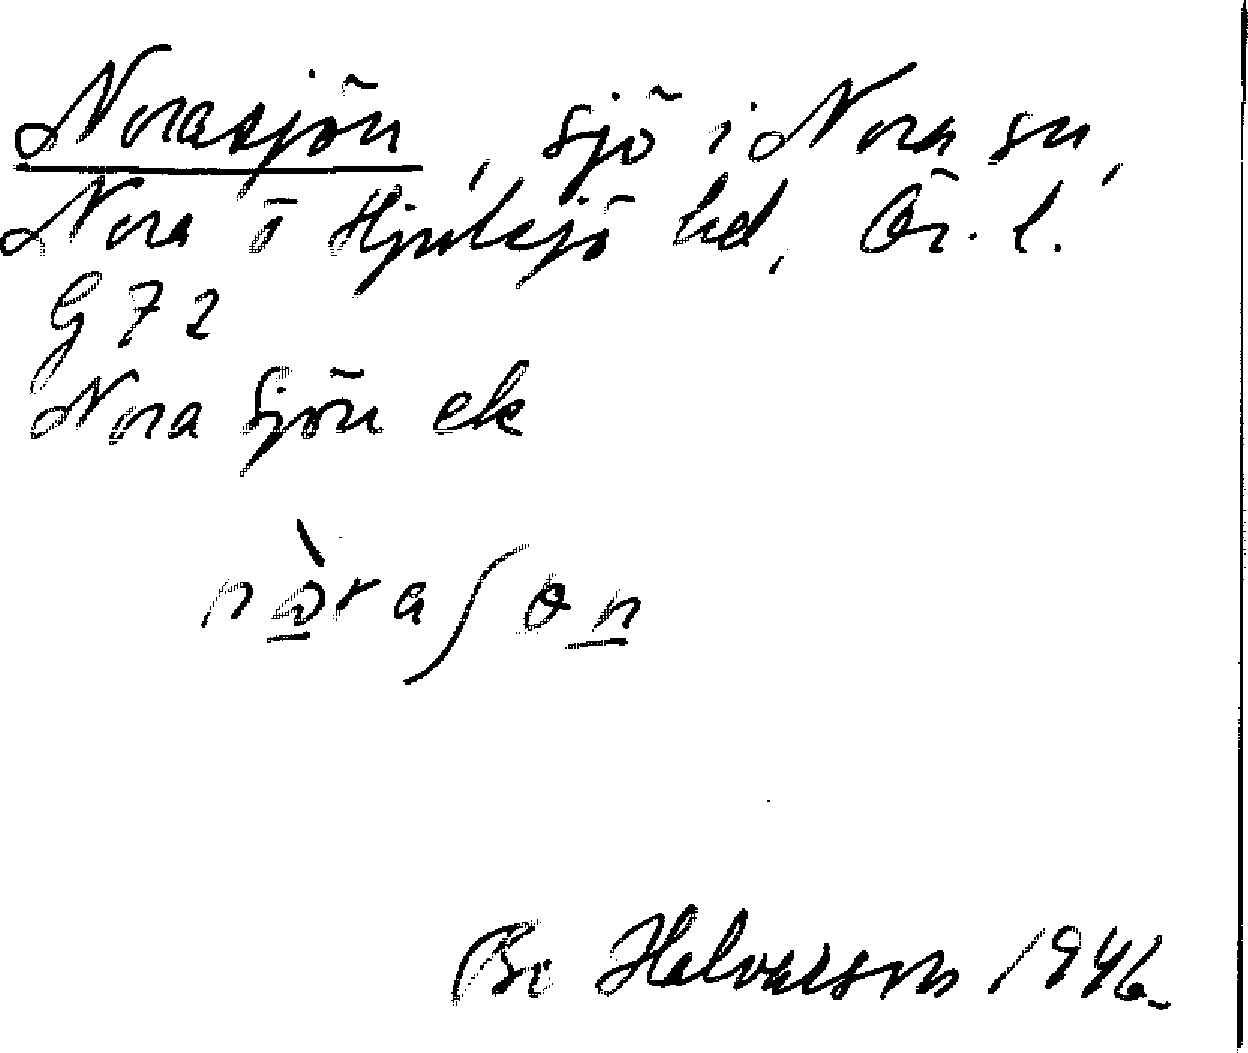 Norasjön, sjö i Nora sn,
Nora o Hjulsjö hd, Ör. l.
G 7 2
Nora Sjön ek
nò̱raʃɵṉ
Bo Halvarson 1946